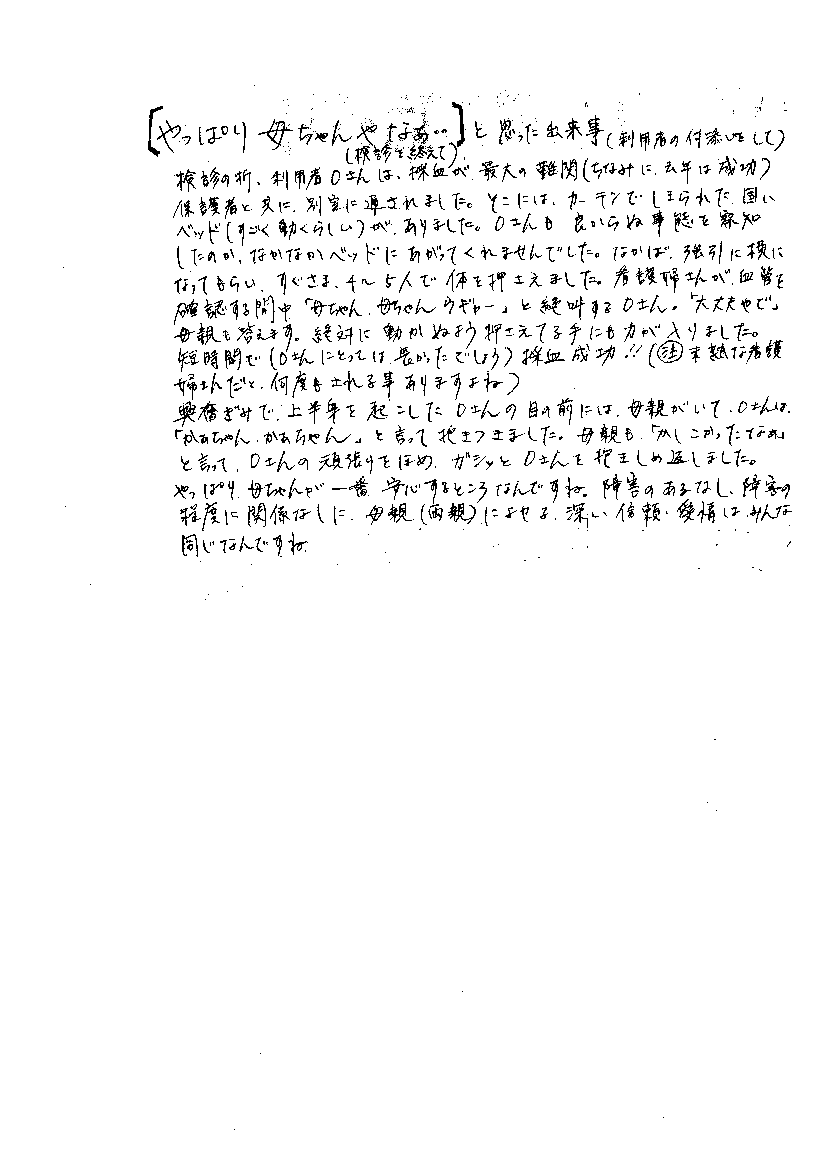 [やっぱり 母ちゃんやなぁ‥]と思った出来事(利用者の付添いとして)
(検診を終えて)
検診の折、利用者Oさんは、採血が最大の難関(ちなみに、去年は成功)
保護者と共に、別室に通されました。そこには、カーテンでしきられた、固い
ベッド(すごく動くらしい)が、ありました。Oさんも 良からぬ事態を察知
したのか、なかなかベッドにあがってくれませんでした。なかば、強引に横に
なってもらい、すぐさま、4〜5人で体を押さえました。看護婦さんが、血管を
確認する間中「母ちゃん、母ちゃんウギャー」と絶叫するOさん。「大丈夫やで」
母親も答えます。絶対に動かぬよう押さえてる手にも力が入りました。
短時間で(Oさんにとっては、長かったでしょう)採血成功!!(注 未熟な看護
婦さんだと、何度もされる事ありますよね)
興奮ぎみで、上半身を起こしたOさんの目の前には、母親がいて、Oさんは、
「かあちゃん、かあちゃん」と言って抱きつきました。母親も、「かしこかったなぁ」
と言って、Oさんの頑張りをほめ、ガシッとOさんを抱きしめ返しました。
やっぱり、母ちゃんが一番、安心するところなんですね。障害のあるなし、障害の
程度に関係なしに、母親(両親)によせる、深い信頼・愛情は、みんな
同じなんですね